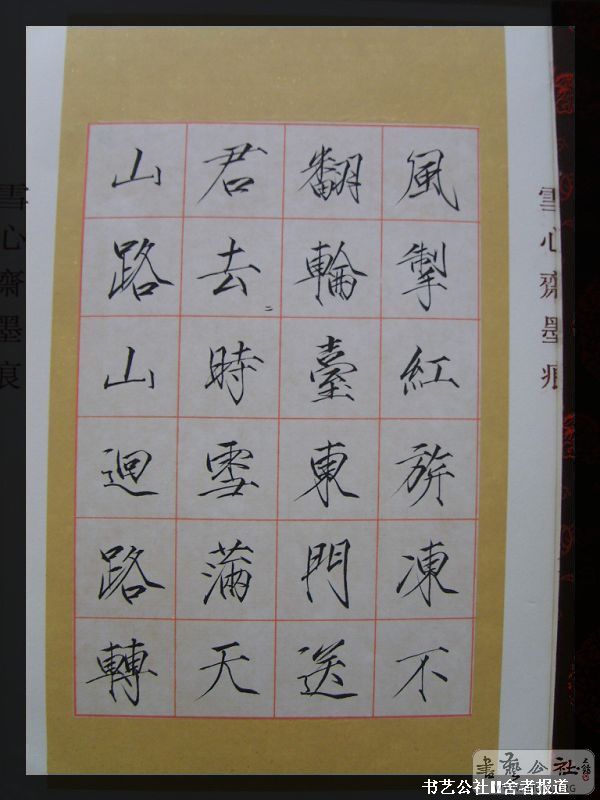 雪心齋墨痕
風掣紅旂凍不
翻輪臺東門送
君去二時雪滿天
山路山迴路轉
雪心齋墨痕
書藝公社
书艺公社II舍者报道